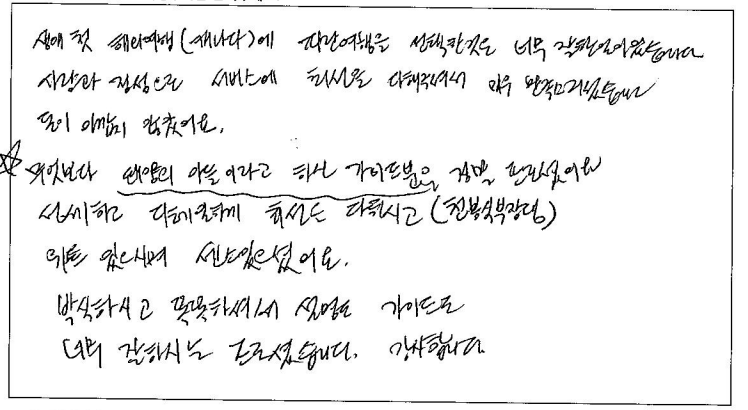 생애 첫 해외여행(캐나다)에 파란여행을 선택한것은 너무 잘한일이었습니다
사랑과 정성으로 서비스에 최선을 다해주셔서 매우 만족스러웠습니다
돈이 아깝지 않았어요.
☆ 무엇보다 아들이라고 하신 가이드분은 정말 프로셨어요
상세하고 디테일하게 최선을 다해주시고 (천봉석부장님)
위트 있으시며 센스있으셨어요.
박식하시고 똑똑하셔서 설명도 가이드도
너무 잘하시는 프로셨습니다. 감사합니다